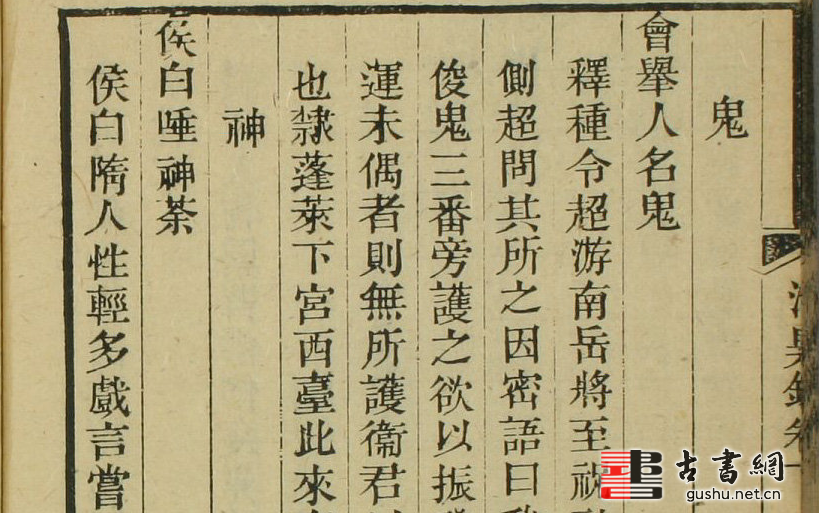 鬼
會舉人名鬼
釋種令超游南岳將至祝
側超問其所之因密語曰
俊鬼三番旁護之欲以振
運未偶者則無所護衞君
也隸蓬萊下宮西臺此來
神
侯白唾神荼
侯白隋人性輕多戲言嘗
古書網
gushu.net.cn